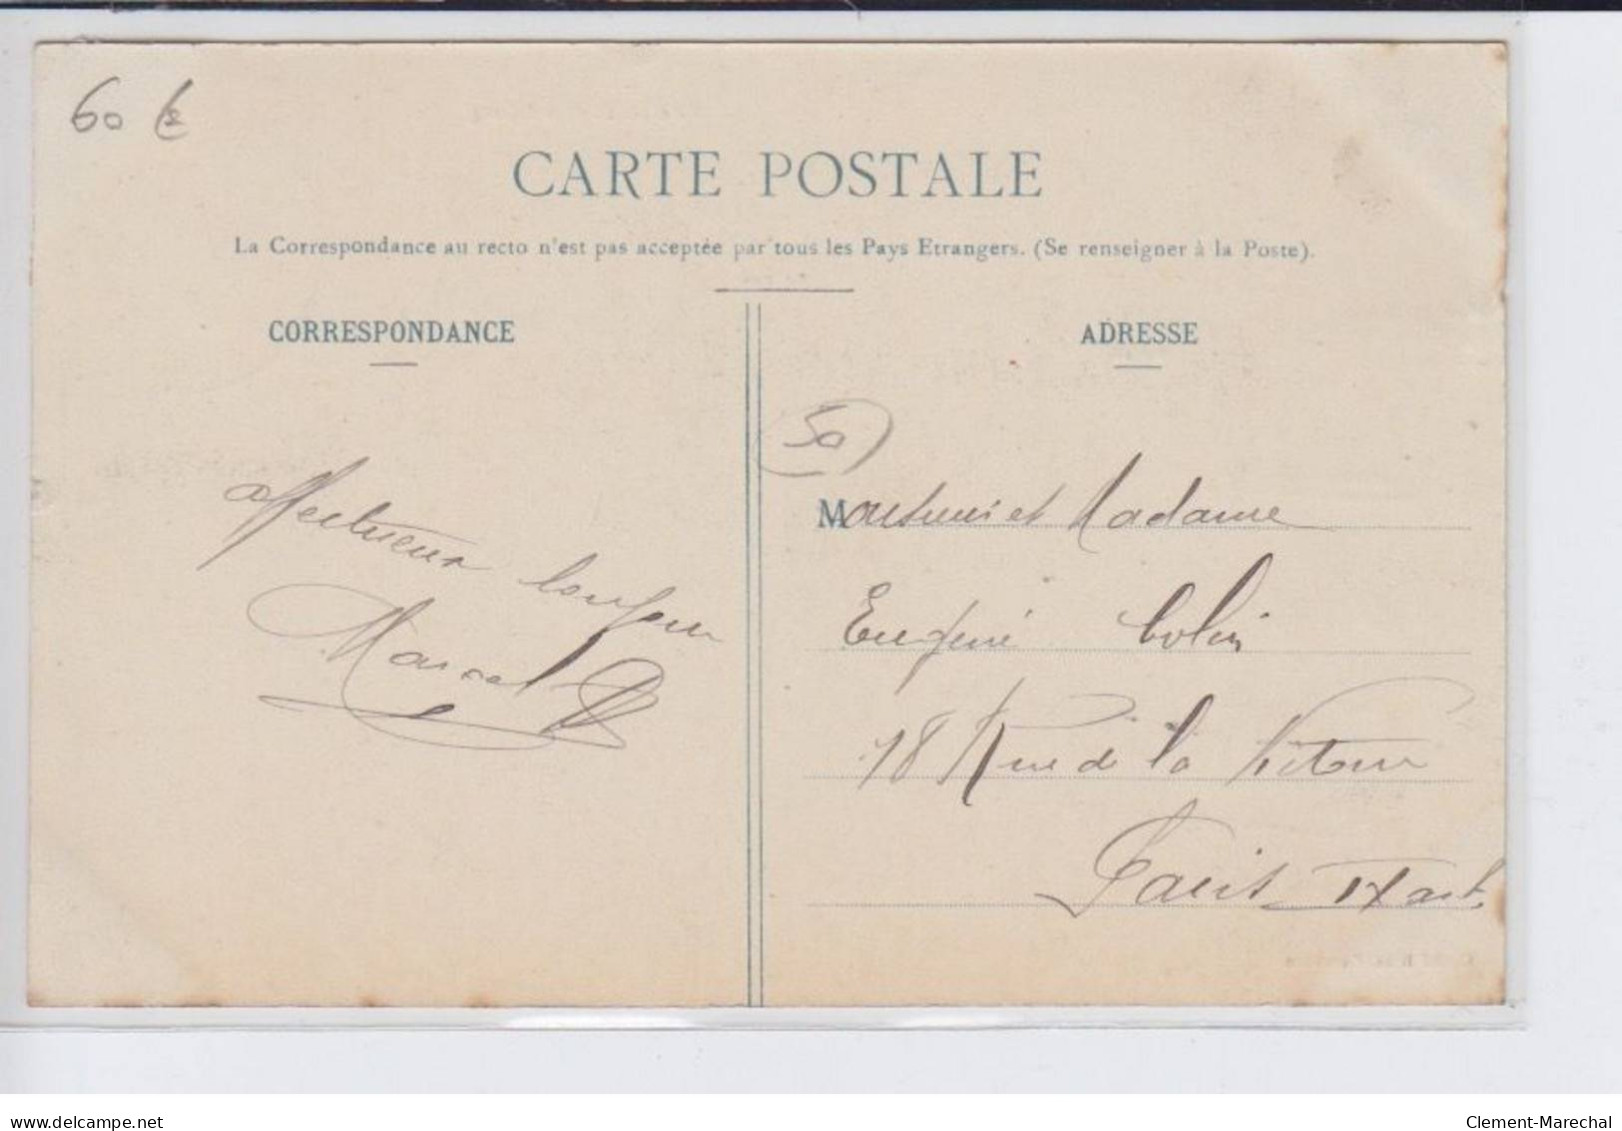 60 €
CARTE POSTALE
La Correspondance au recto n'est pas acceptée par tous les Pays Etrangers. (Se renseigner à la Poste).
CORRESPONDANCE
affectueux
Marcel
ADRESSE
50
Monsieur et Madame
Eugène Colin
18 Rue de la Victoire
Paris IX art.
www.delcampe.net
Clement-Marechal